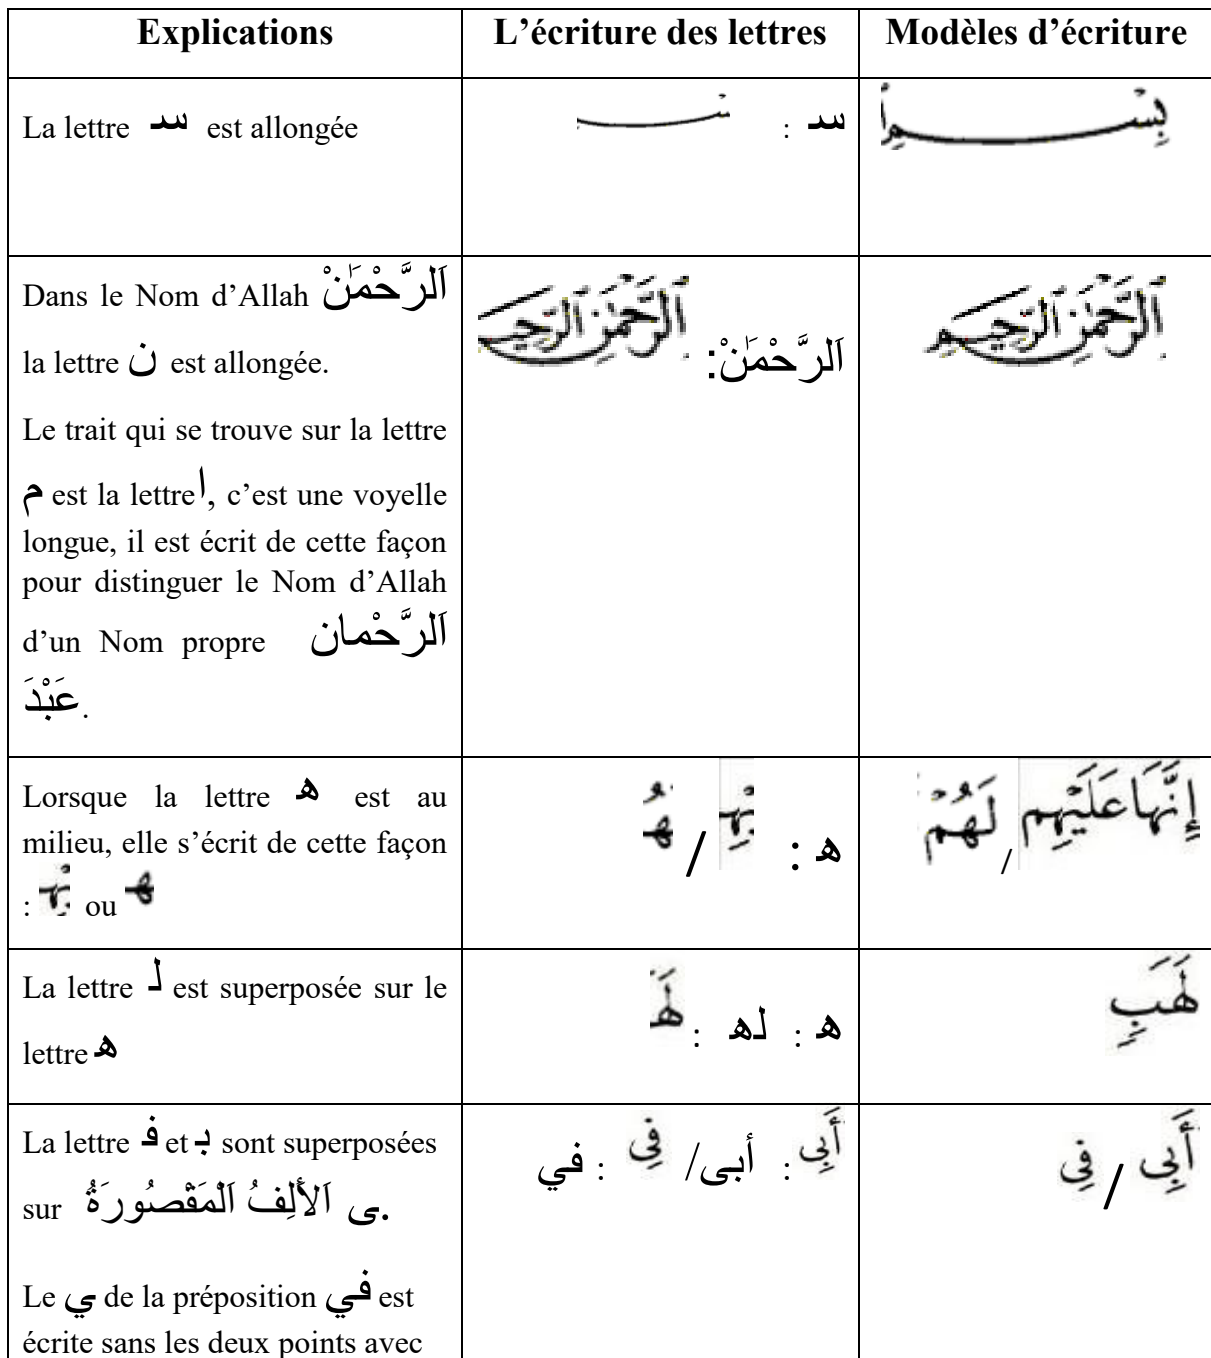 Explications L'écriture des lettres Modèles d'écriture
La lettre سـ est allongée
سـ :
بِسْمِ
Dans le Nom d'Allah اَلرَّحْمَٰنْ
la lettre ن est allongée.
Le trait qui se trouve sur la lettre
م est la lettre ا, c'est une voyelle
longue, il est écrit de cette façon
pour distinguer le Nom d'Allah
d'un Nom propre اَلرَّحْمان
عَبْدَ.
اَلرَّحْمَٰنْ: اَلرَّحْمٰنِ الرَّحِيـ
اَلرَّحْمٰنِ الرَّحِيمِ
Lorsque la lettre ه est au
milieu, elle s'écrit de cette façon
: ـهـ ou ـهـ
ه : ـهـ / ـهـ
إِنَّهَا عَلَيْهِم / لَهُمْ
La lettre لـ est superposée sur le
lettre ه
ه : له : لَهَـ
لَهَبٍ
La lettre فـ et بـ sont superposées
sur ى اَلأَلِفُ اَلْمَقْصُورَةُ.
Le ي de la préposition في est
écrite sans les deux points avec
أَبِى : أبى / فِى : في
أَبِى / فِى